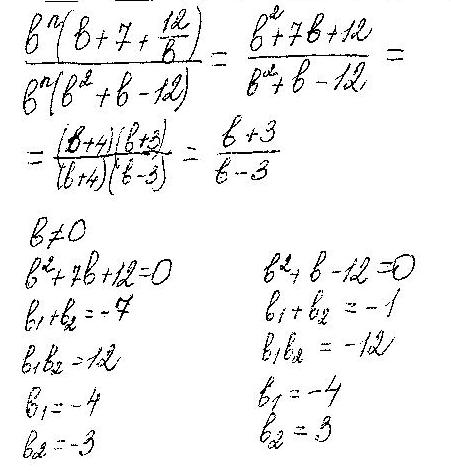 bⁿ(b+7+12/b)/bⁿ(b²+b-12) = b²+7b+12/b²+b-12 =
= (b+4)(b+3)/(b+4)(b-3) = b+3/b-3
b≠0
b²+7b+12=0
b₁+b₂=-7
b₁b₂=12
b₁=-4
b₂=-3
b²+b-12=0
b₁+b₂=-1
b₁b₂=-12
b₁=-4
b₂=3